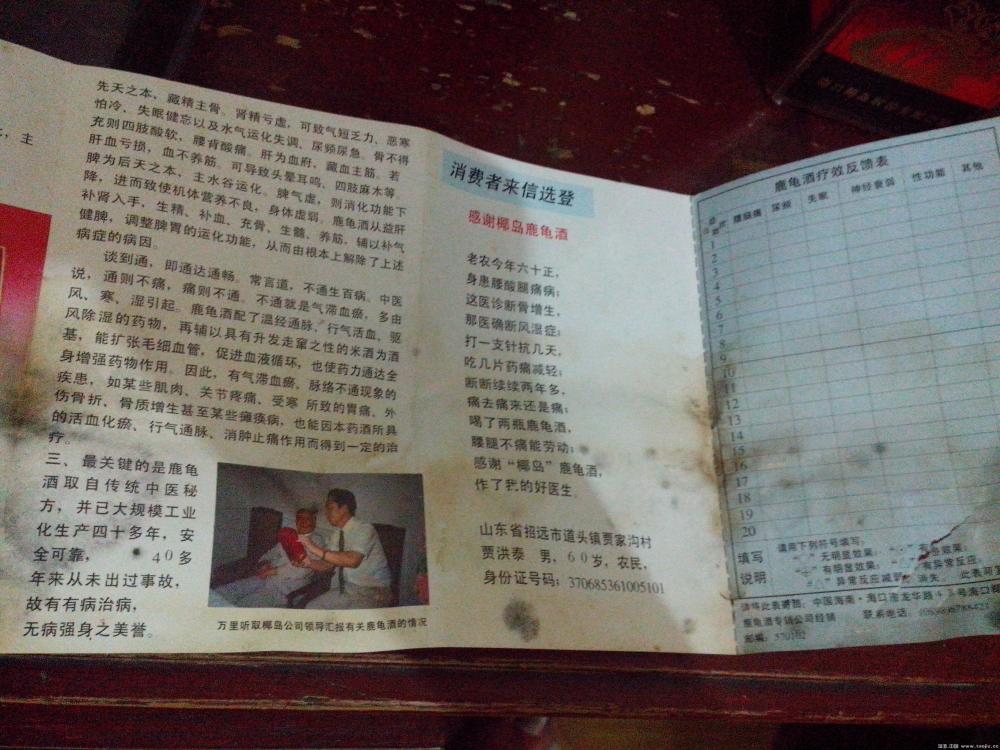 ，主
先天之本，藏精主骨。肾精亏虚，可致气短乏力、恶寒
怕冷、失眠健忘以及水气运化失调、尿频尿急。骨不得
充则四肢酸软，腰背酸痛。肝为血府，藏血主筋。若
肝血亏损，血不养筋。可导致头晕耳鸣、四肢麻木等。
脾为后天之本，主水谷运化。脾气虚，则消化功能下
降，进而致使机体营养不良，身体虚弱。鹿龟酒从益肝
补肾入手，生精、补血、充骨、生髓、养筋，辅以补气
健脾，调整脾胃的运化功能，从而由根本上解除了上述
病症的病因。
谈到通，即通达通畅。常言道，不通生百病。中医
说，通则不痛，痛则不通。不通就是气滞血瘀，多由
风、寒、湿引起。鹿龟酒配了温经通脉、行气活血、驱
风除湿的药物，再辅以具有升发走窜之性的米酒为酒
基，能扩张毛细血管，促进血液循环，也使药力通达全
身增强药物作用。因此，有气滞血瘀、脉络不通现象的
疾患，如某些肌肉、关节疼痛、受寒 所致的胃痛、外
伤骨折、骨质增生甚至某些瘫痪病，也能因本药酒所具
的活血化瘀、行气通脉、消肿止痛作用而得到一定的治
疗。
三、最关键的是鹿龟
酒取自传统中医秘
方，并已大规模工业
化生产四十多年，安
全可靠， 40多
年来从未出过事故，
故有有病治病，
无病强身之美誉。
万里听取椰岛公司领导汇报有关鹿龟酒的情况
消费者来信选登
感谢椰岛鹿龟酒
老农今年六十正，
身患腰酸腿痛病；
这医诊断骨增生，
那医确断风湿症；
打一支针抗几天，
吃几片药痛减轻；
断断续续两年多，
痛去痛来还是痛；
喝了两瓶鹿龟酒，
腰腿不痛能劳动；
感谢“椰岛”鹿龟酒，
作了我的好医生。
山东省招远市道头镇贾家沟村
贾洪泰 男，60岁，农民，
身份证号码：370685361005101
鹿龟酒疗效反馈表
腰腿痛 尿频 失眠 神经衰弱 性功能 其他
1
2
3
4
5
6
7
8
9
10
11
12
13
14
15
16
17
18
19
20
填写
说明
请用下列符号填写：
无明显效果；
有明显效果；
异常反应减轻、消失。
有异常反应。
请将此表寄回：中国海南·海口市龙华路
鹿龟酒专销公司经销 联系电话：
邮编：570102